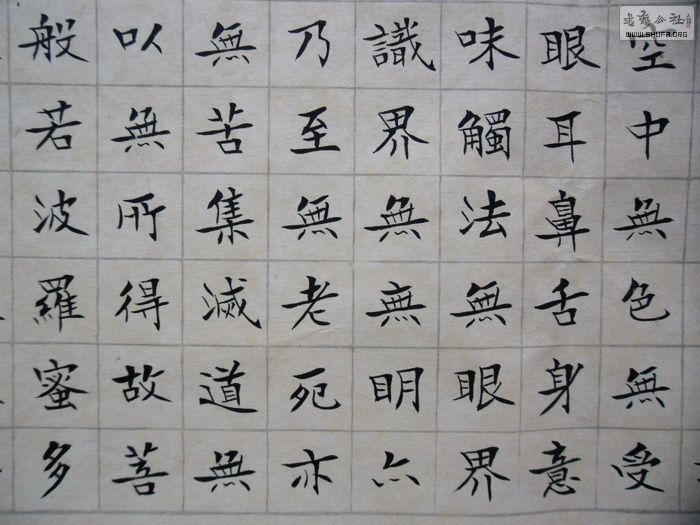 空中無色無受
眼耳鼻舌身意
味觸法無眼界
識界無無明亦
乃至無老死亦
無苦集滅道無
以無所得故菩
般若波羅蜜多
書法公社
WWW.SHUFA.ORG